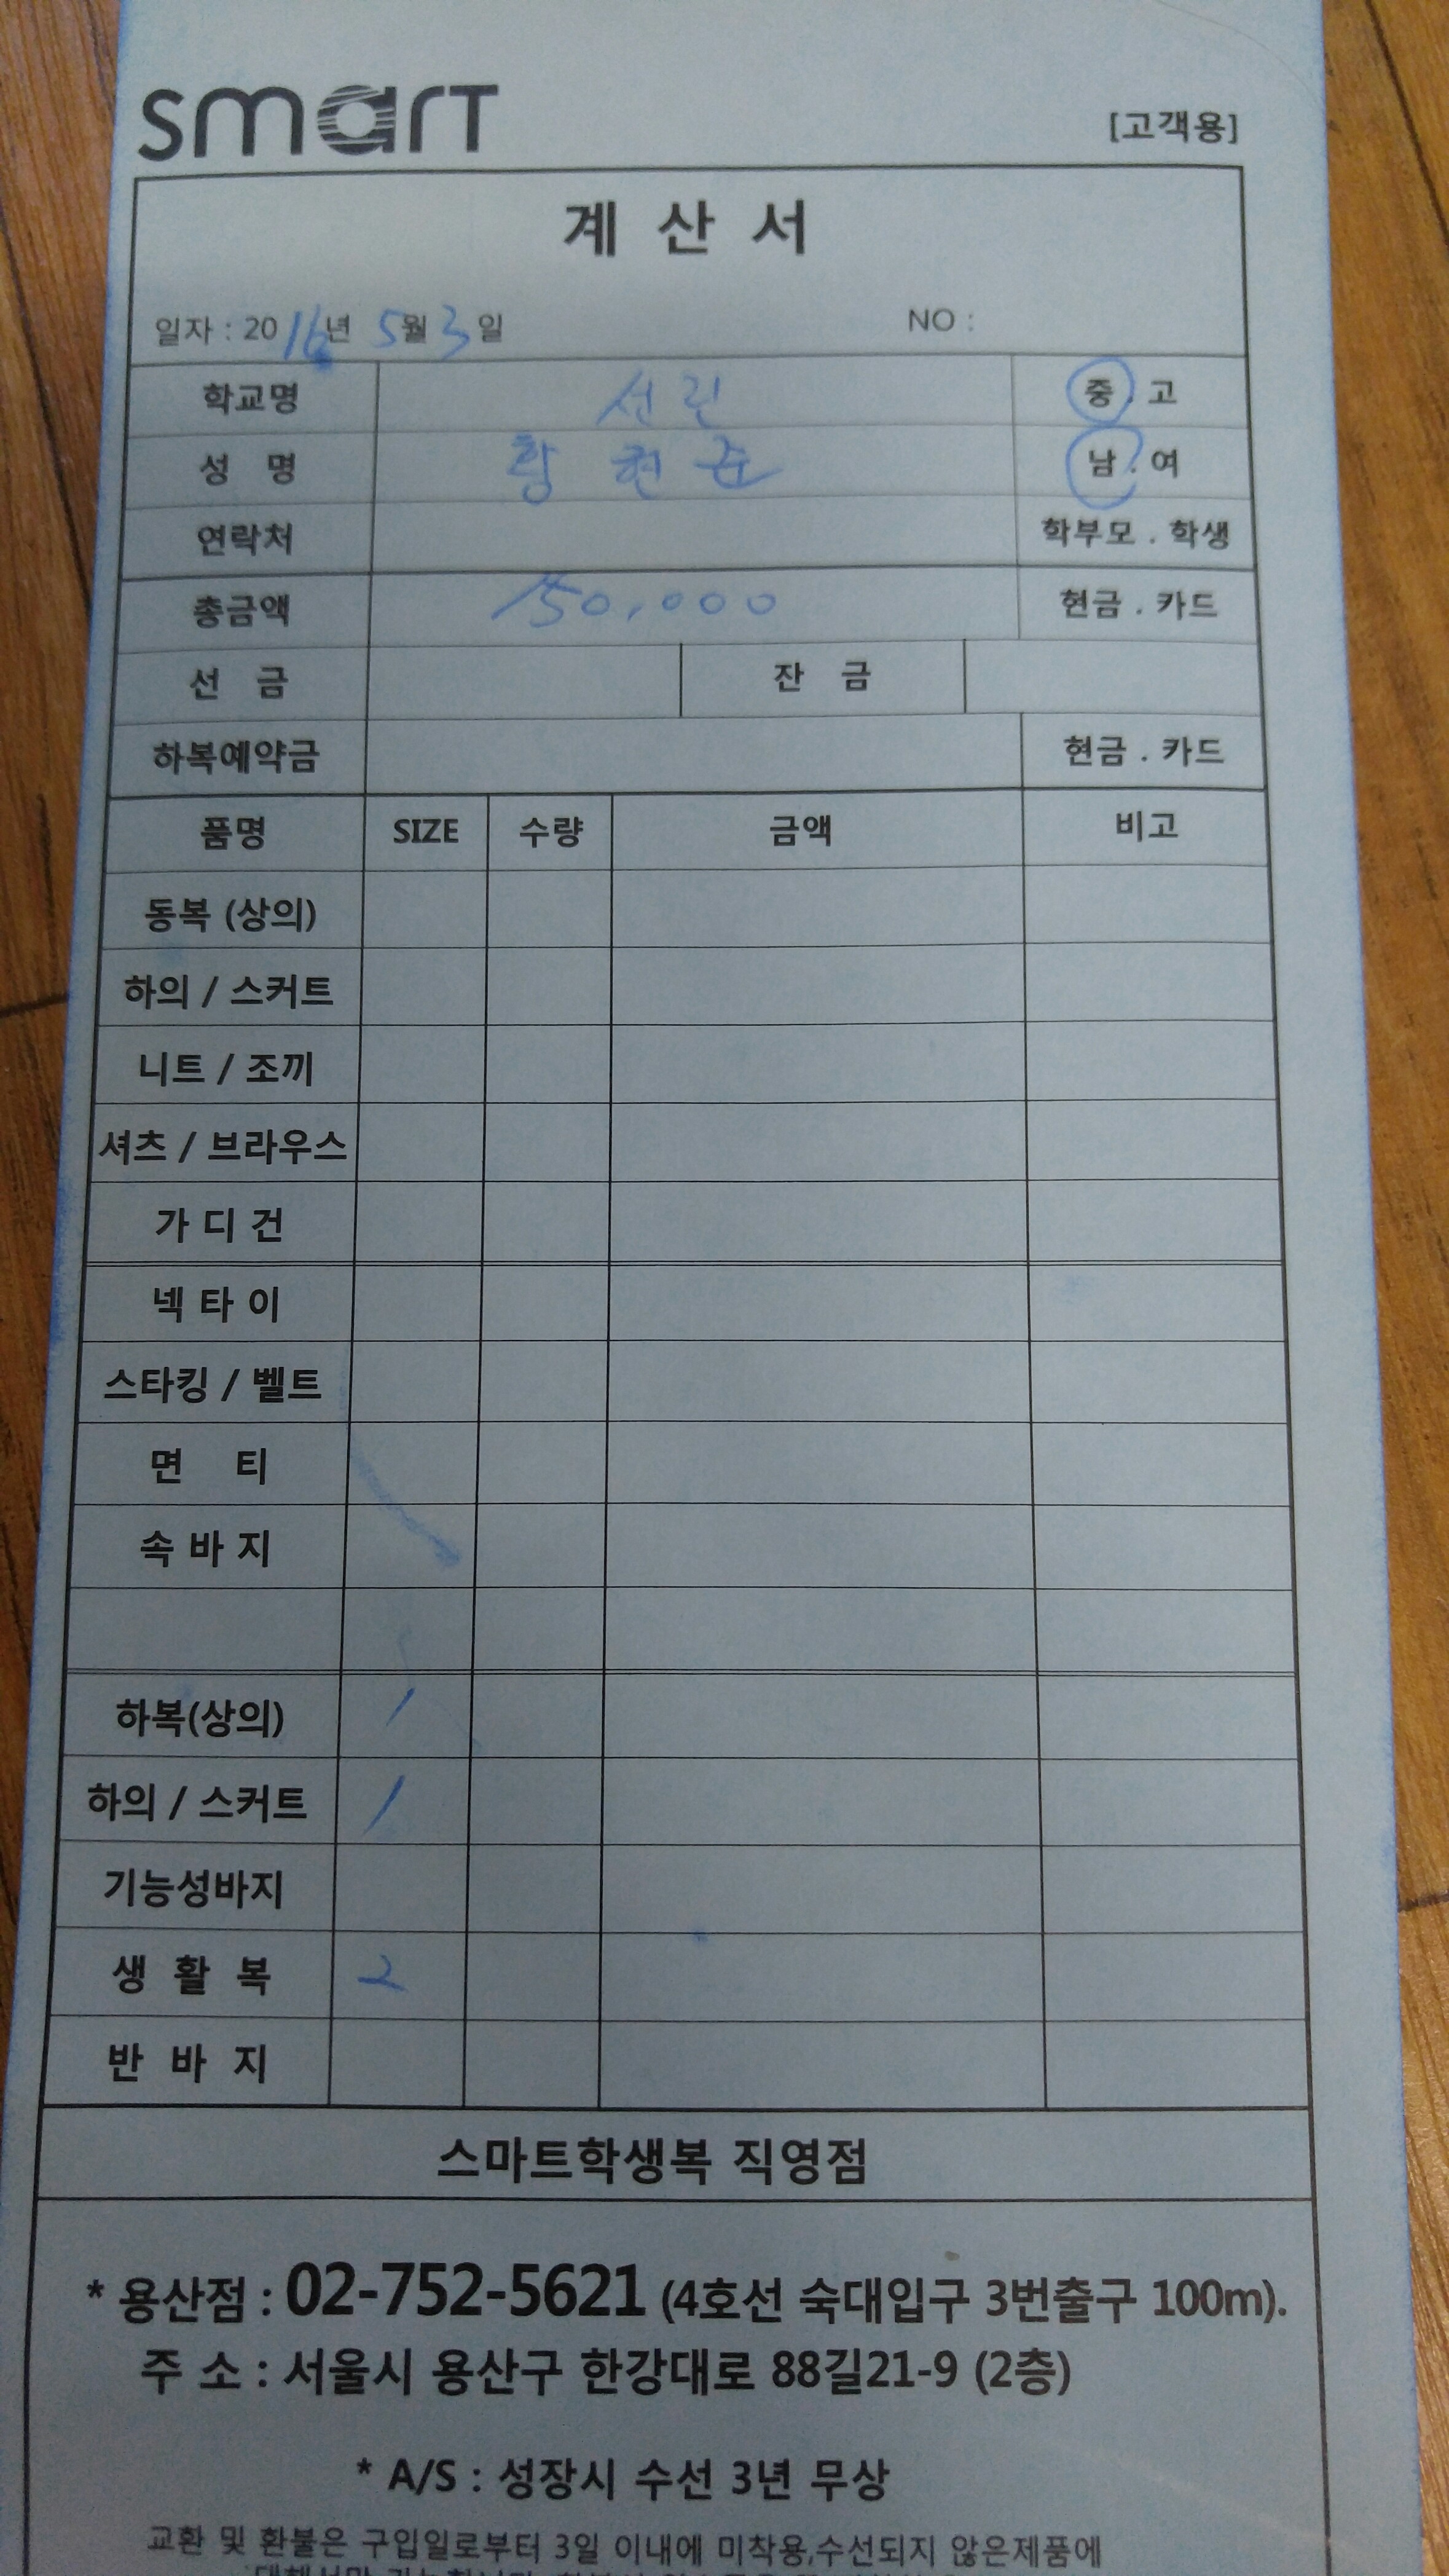 smart
[고객용]
계 산 서
일자 : 2016년 5월 3일 NO :
학교명 선린 중 . 고
성 명 황 현 준 남 . 여
연락처 학부모 . 학생
총금액 150,000 현금 . 카드
선 금 잔 금
하복예약금 현금 . 카드
품명 SIZE 수량 금액 비고
동복 (상의)
하의 / 스커트
니트 / 조끼
셔츠 / 브라우스
가 디 건
넥 타 이
스타킹 / 벨트
면 티
속 바 지
하복(상의) 1
하의 / 스커트 1
기능성바지
생 활 복 2
반 바 지
스마트학생복 직영점
* 용산점 : 02-752-5621 (4호선 숙대입구 3번출구 100m).
주 소 : 서울시 용산구 한강대로 88길21-9 (2층)
* A/S : 성장시 수선 3년 무상
교환 및 환불은 구입일로부터 3일 이내에 미착용,수선되지 않은제품에